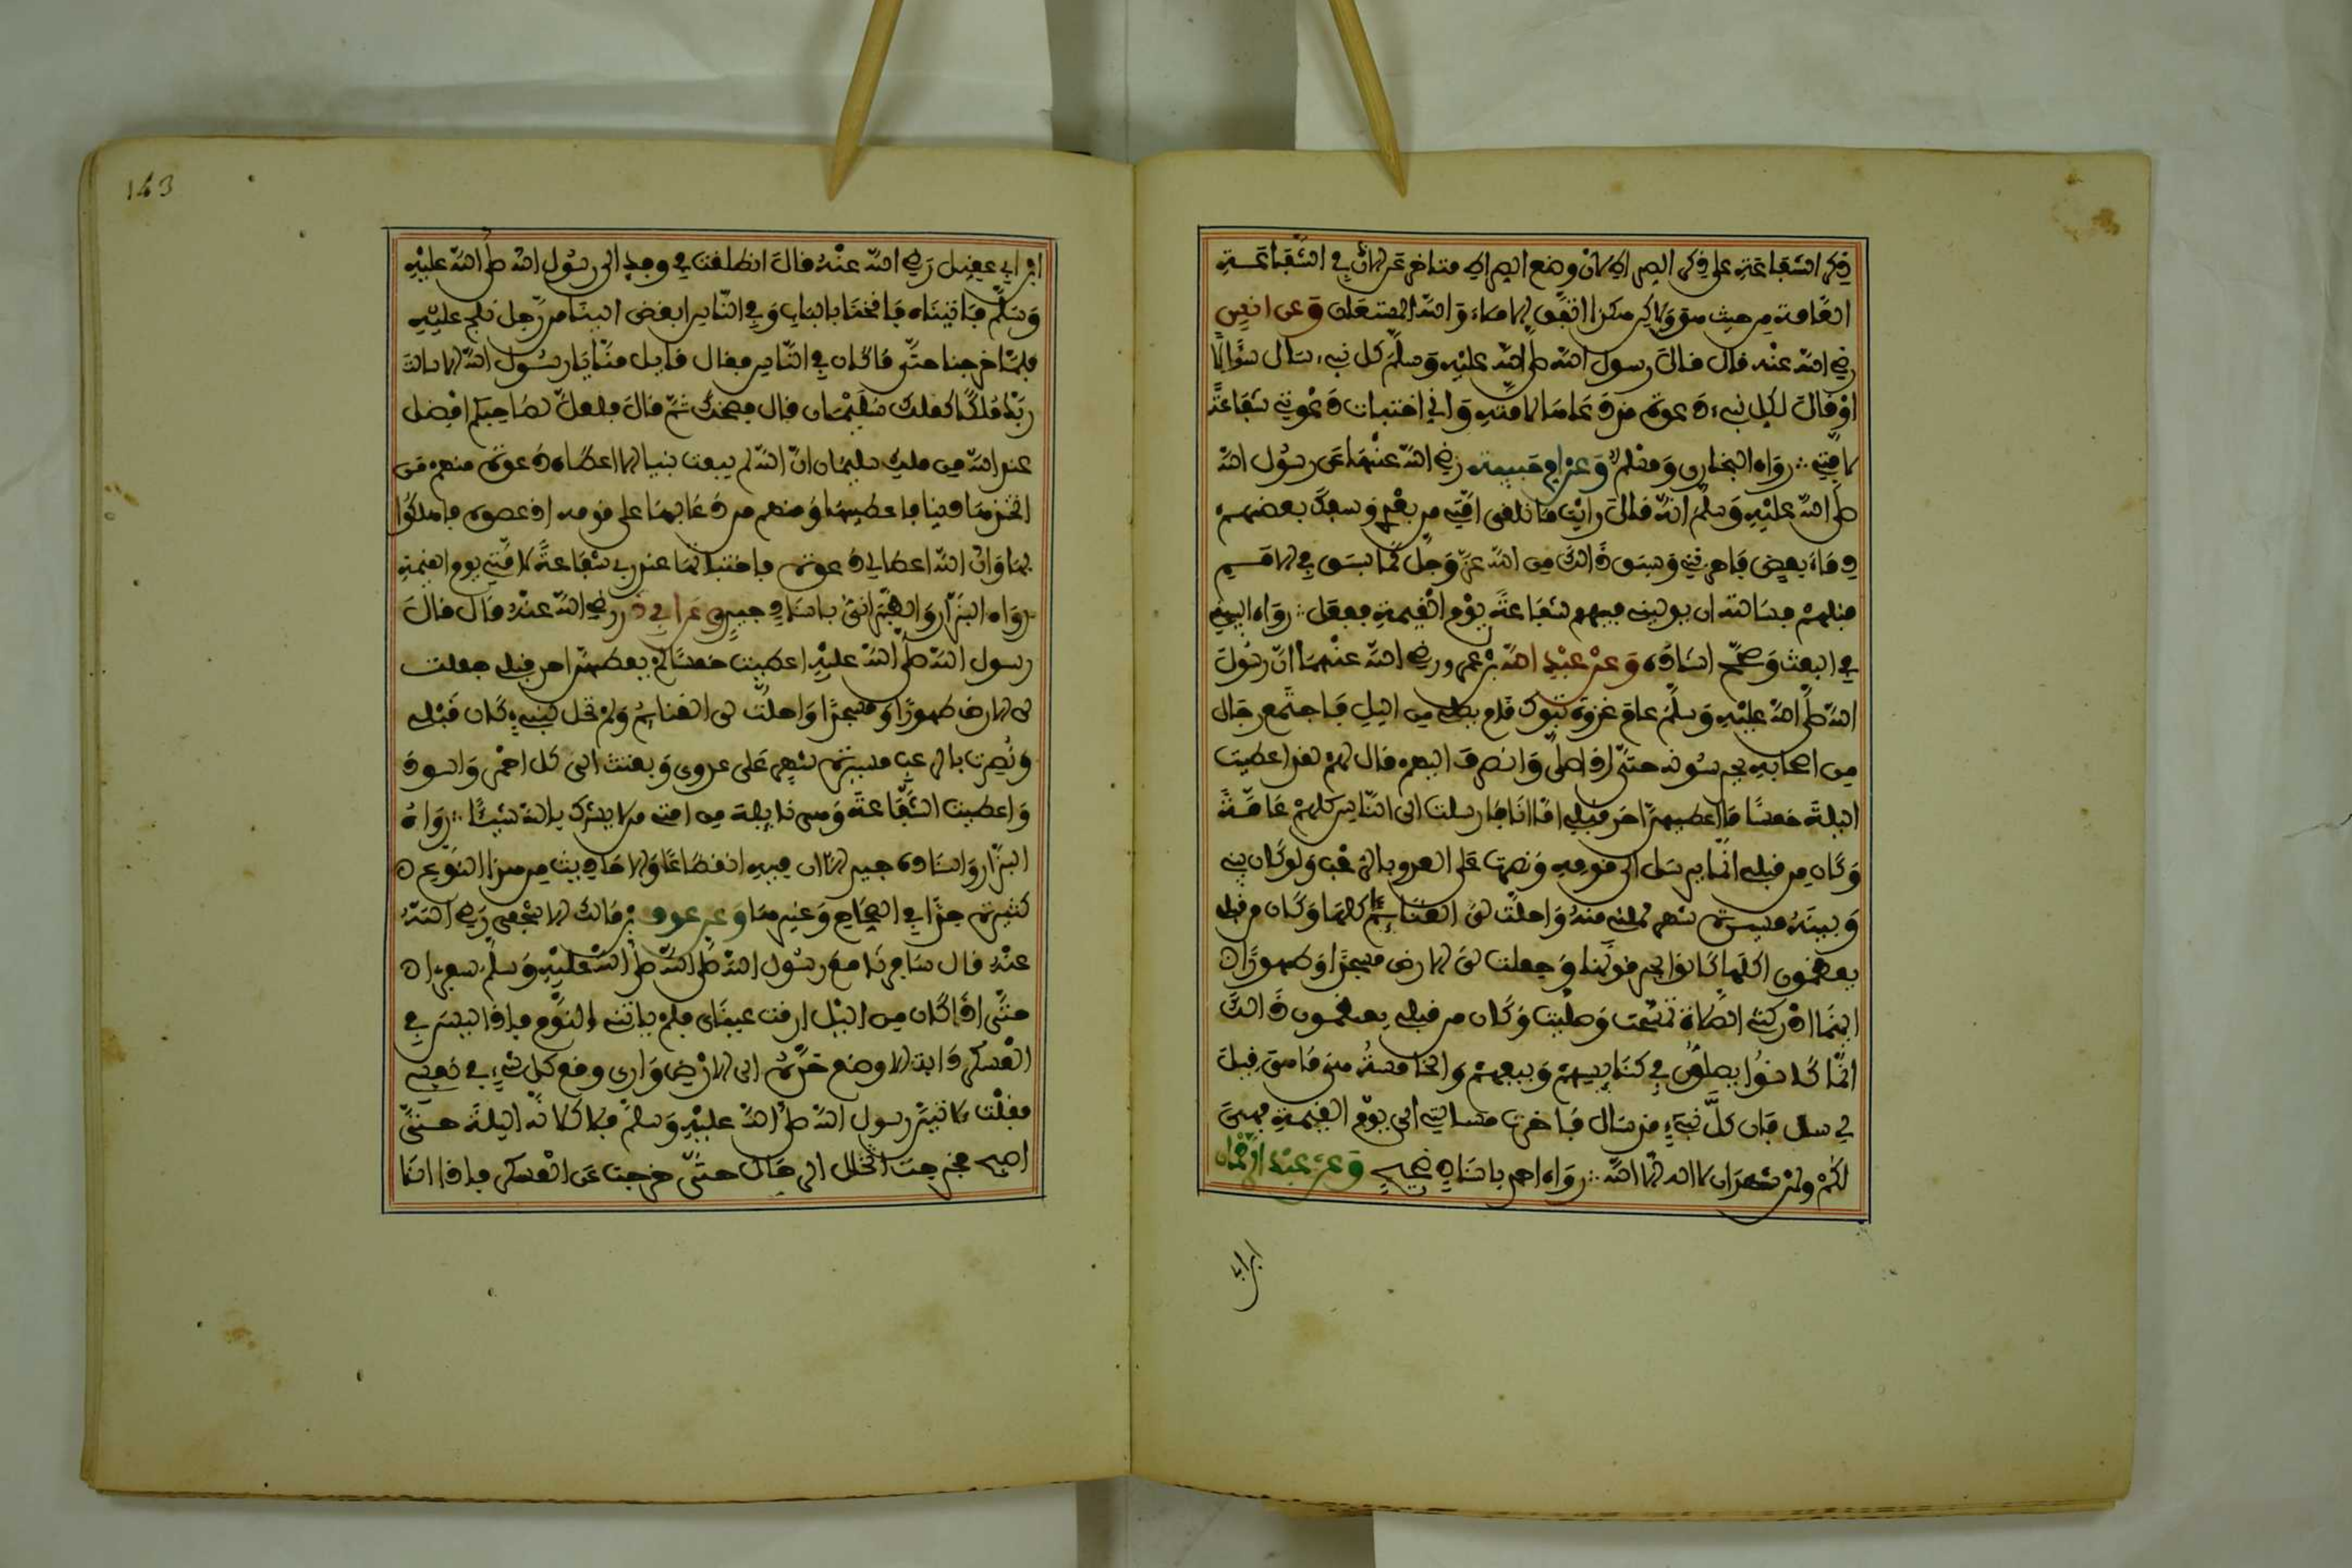 ذكر الشفاعة على ذكر الصراط لان وضع الصراط متاخر عن الاذن في الشفاعة
العامة من حيث هو ولاكن هكذا اتفق الاملاء والله المستعان وعن انس
رضي الله عنه قال قال رسول الله صلى الله عليه وسلم كل نبيء سال سؤالا
او قال لكل نبيء دعوة قد دعاها لامته واني اختبات دعوتي شفاعة
لامتي رواه البخاري ومسلم وعن ام حبيبة رضي الله عنها عن رسول الله
صلى الله عليه وسلم انه قال رايت ما تلقى امتي من بعدي وسفك بعضهم
دماء بعض فاحزنني وسبق ذالك من الله عز وجل كما سبق في الامم
قبلهم فسالته ان يوليني فيهم شفاعة يوم القيمة ففعل رواه البيهقي
في البعث وصحح اسناده وعن عبد الله بن عمرو رضي الله عنهما ان رسول
الله صلى الله عليه وسلم عام غزوة تبوك قام يصلي من اليل فاجتمع رجال
من اصحابه يحرسونه حتى اذا صلى وانصرف اليهم قال لهم لقد اعطيت
اليلة خمسا ما اعطيهن احد قبلي اما انا فارسلت الى الناس كلهم عامة
وكان من قبلي انما يرسل الى قومه ونصرت على العدو بالرعب ولو كان بيني
وبينه مسيرة شهر لملئ منه واحلت لي الغنائم كلها وكان من قبلي
يعظمون اكلها كانوا يحرقونها وجعلت لي الارض مسجدا وطهورا
اينما ادركتني الصلاة تمسحت وصليت وكان من قبلي يعظمون ذالك
انما كانوا يصلون في كنايسهم وبيعهم والخامسة هي ما هي قيل
لي سل فان كل نبيء قد سال فاخرت مسالتي الى يوم القيمة فهي
لكم ولمن شهد ان لا اله الا الله رواه احمد باسناد صحيح وعن عبد الرحمان
ابن ابي
143
ابن ابي عقيل رضي الله عنه قال انطلقت في وفد الى رسول الله صلى الله عليه
وسلم فاتيناه فانخنا بالباب وفي الناس ابغض الينا من رجل نلج عليه
فلما خرجنا حتى ما كان في الناس فقال قايل منا يا رسول الله الا سالت
ربك ملكا كملك سليمان قال فضحك ثم قال فلعل لصاحبكم افضل
عند الله من ملك سليمان ان الله لم يبعث نبيا الا اعطاه دعوة منهم من
اتخذ بها دنيا فاعطيها ومنهم من دعا بها على قومه اذ عصوه فاهلكوا
بها وان الله اعطاني دعوة فاختباتها عند ربي شفاعة لامتي يوم القيمة
رواه البزار والطبراني باسناد جيد وعن ابي ذر رضي الله عنه قال قال
رسول الله صلى الله عليه اعطيت خمسا لم يعطهن احد قبلي جعلت
لي الارض طهورا ومسجدا واحلت لي الغنايم ولم تحل لنبيء كان قبلي
ونصرت بالرعب مسيرة شهر على عدوي وبعثت الى كل احمر واسود
واعطيت الشفاعة وهي نايلة من امتي من لا يشرك بالله شيئا رواه
البزار واسناده جيد الا ان فيه انقطاعا والاحاديث من هذا النوع
كثيرة جدا في الصحاح وغيرها وعن عوف بن مالك الاشجعي رضي الله
عنه قال سافرنا مع رسول الله صلى الله صلى الله عليه وسلم سفرا
حتى اذا كان من اليل ارقت عيناي فلم ياتني النوم فاذا ليس في
العسكر دابة الا وضع خده الى الارض وارى وقع كل شيء في نفسي
فقلت لاتين رسول الله صلى الله عليه وسلم فلاكلانه اليلة حتى
اصبح فخرجت اتخلل الرحال حتى خرجت عن العسكر فاذا انا